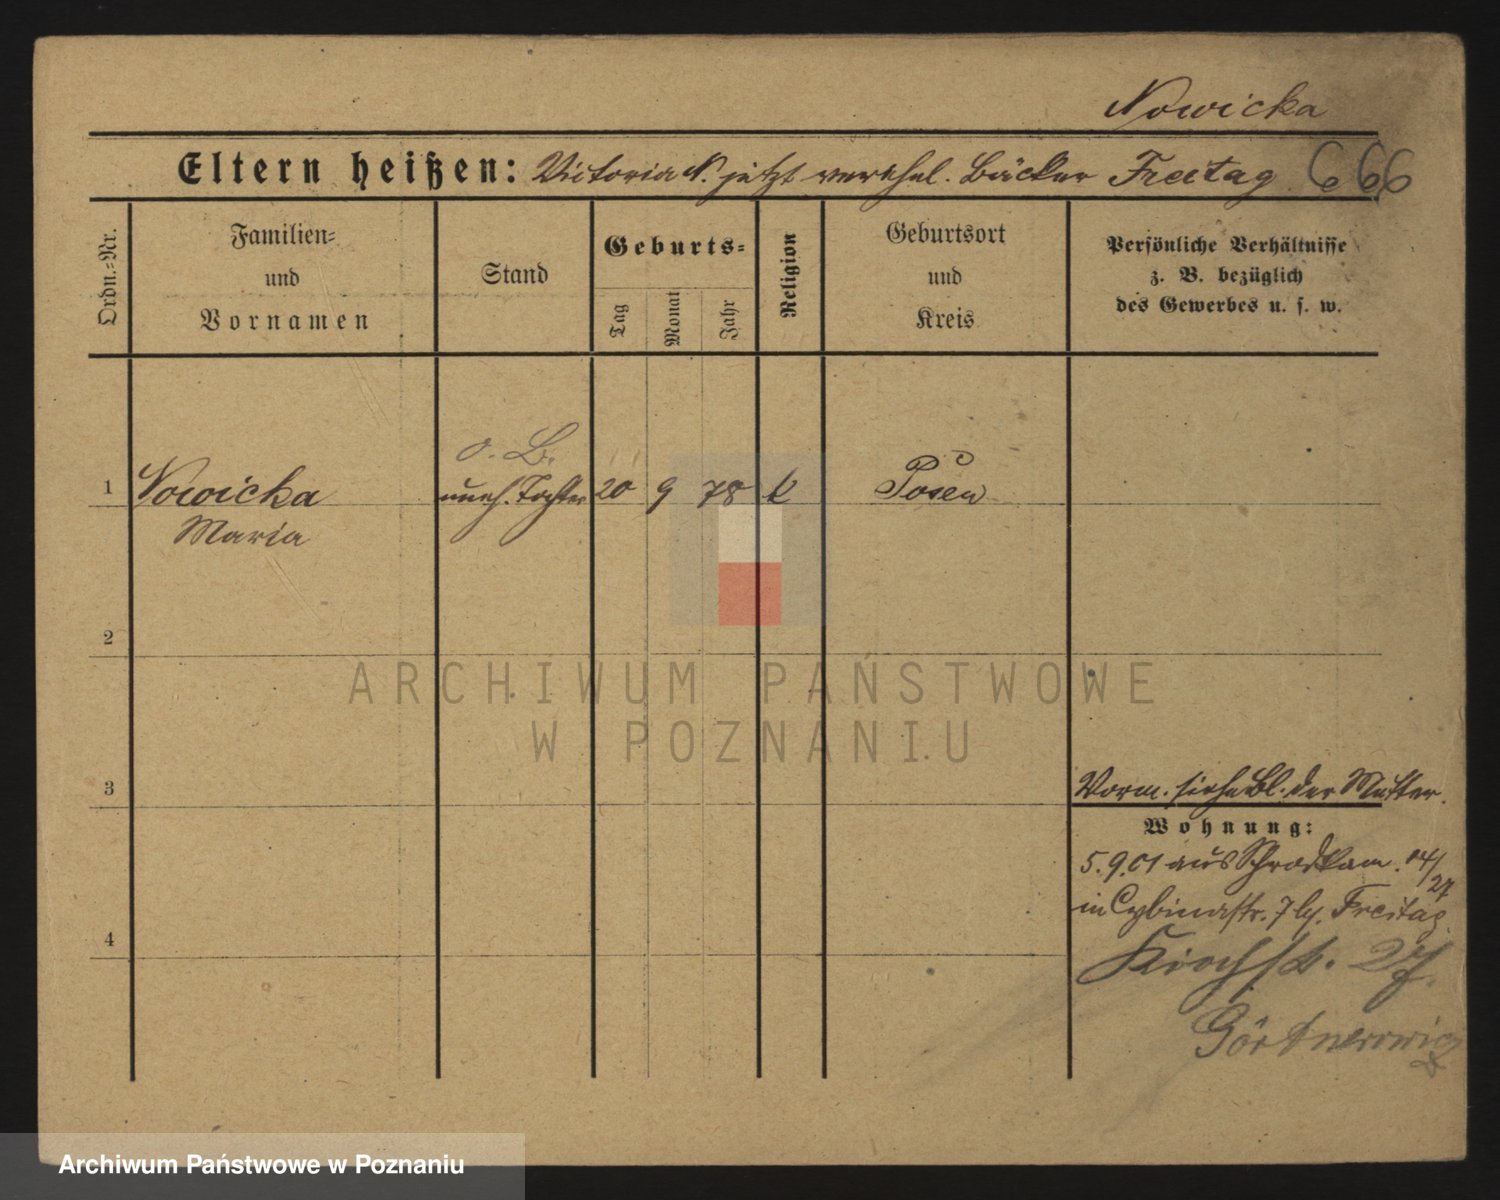 Nowicka
Eltern heißen: Victoria N. jetzt verehel. Bäcker Freitag 666
Ordn.=Nr.
Familien=
und
Vornamen
Stand
Geburts=
Tag
Monat
Jahr
Religion
Geburtsort
und
Kreis
Persönliche Verhältnisse
z. B. bezüglich
des Gewerbes u. s. w.
o. B.
1 Nowicka uneh. Tochter 20 9 78 k Posen
Maria
2
ARCHIWUM PAŃSTWOWE
W POZNANIU
3
Vorm. siehe Bl. der Mutter.
Wohnung:
5.9.01 aus 14/27
in Cybinastr. 7 by. Freitag
4
Kirchstr. 27.
Archiwum Państwowe w Poznaniu